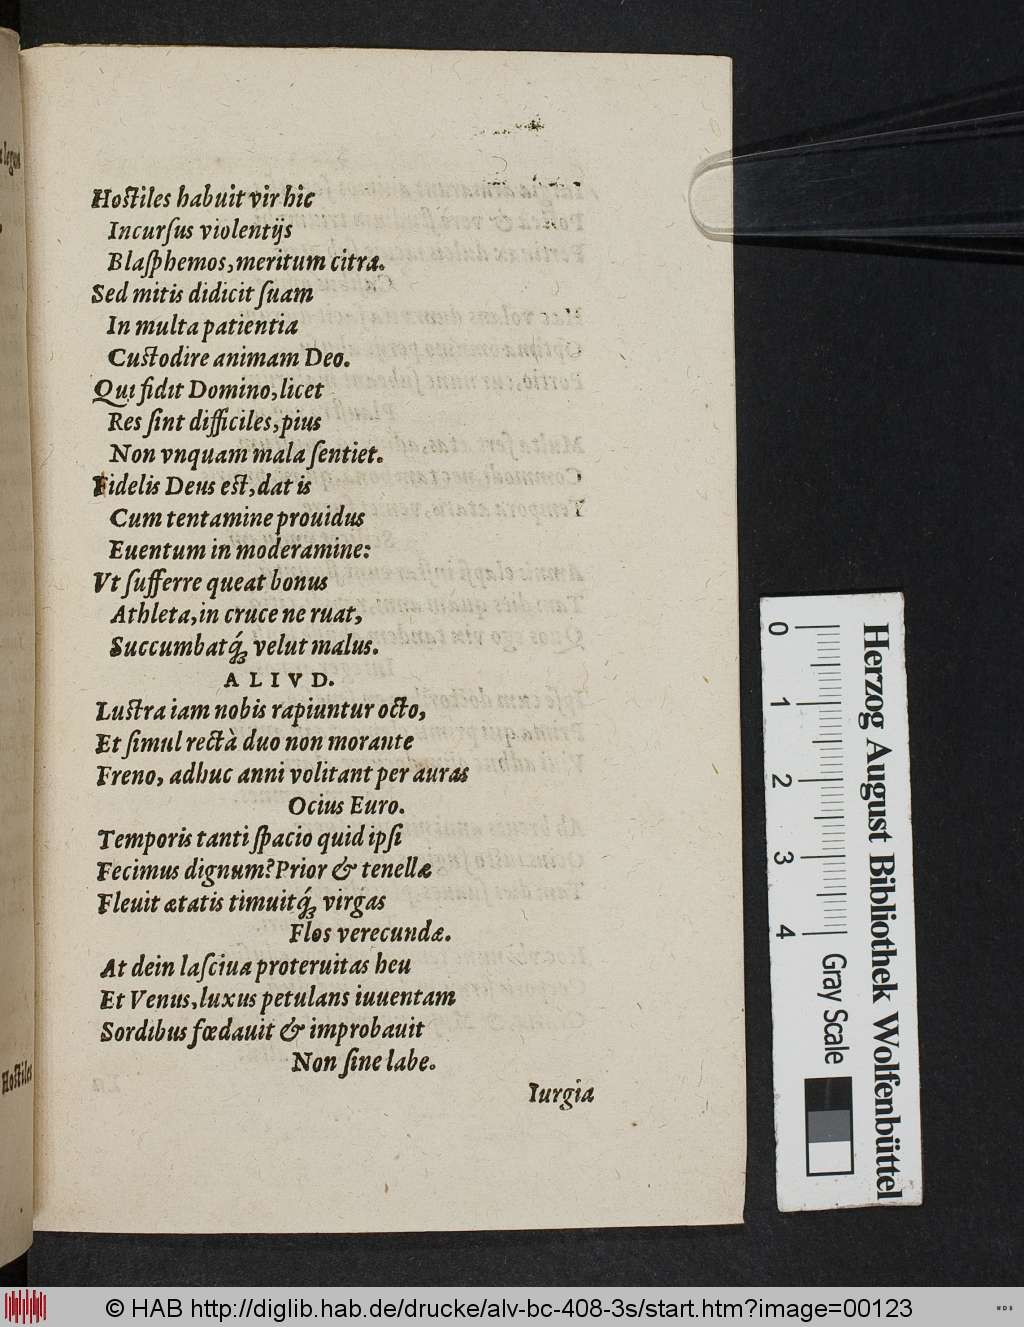 Hostiles habuit vir hic
Incurſus violentijs
Blaſphemos, meritum citra.
Sed mitis didicit ſuam
In multa patientia
Custodire animam Deo.
Qui fidit Domino, licet
Res ſint difficiles, pius
Non vnquam mala ſentiet.
Fidelis Deus est, dat is
Cum tentamine prouidus
Euentum in moderamine:
Vt ſufferre queat bonus
Athleta, in cruce ne ruat,
Succumbatq́ꝫ velut malus.
ALIVD.
Lustra iam nobis rapiuntur octo,
Et ſimul rectà duo non morante
Freno, adhuc anni volitant per auras
Ocius Euro.
Temporis tanti ſpacio quid ipſi
Fecimus dignum? Prior & tenellæ
Fleuit ætatis timuitq́ꝫ virgas
Flos verecundæ.
At dein laſciua proteruitas heu
Et Venus, luxus petulans iuuentam
Sordibus fœdauit & improbauit
Non ſine labe.
Iurgia
Hostiles
0 1 2 3 4
Herzog August Bibliothek Wolfenbüttel
Gray Scale
© HAB http://diglib.hab.de/drucke/alv-bc-408-3s/start.htm?image=00123